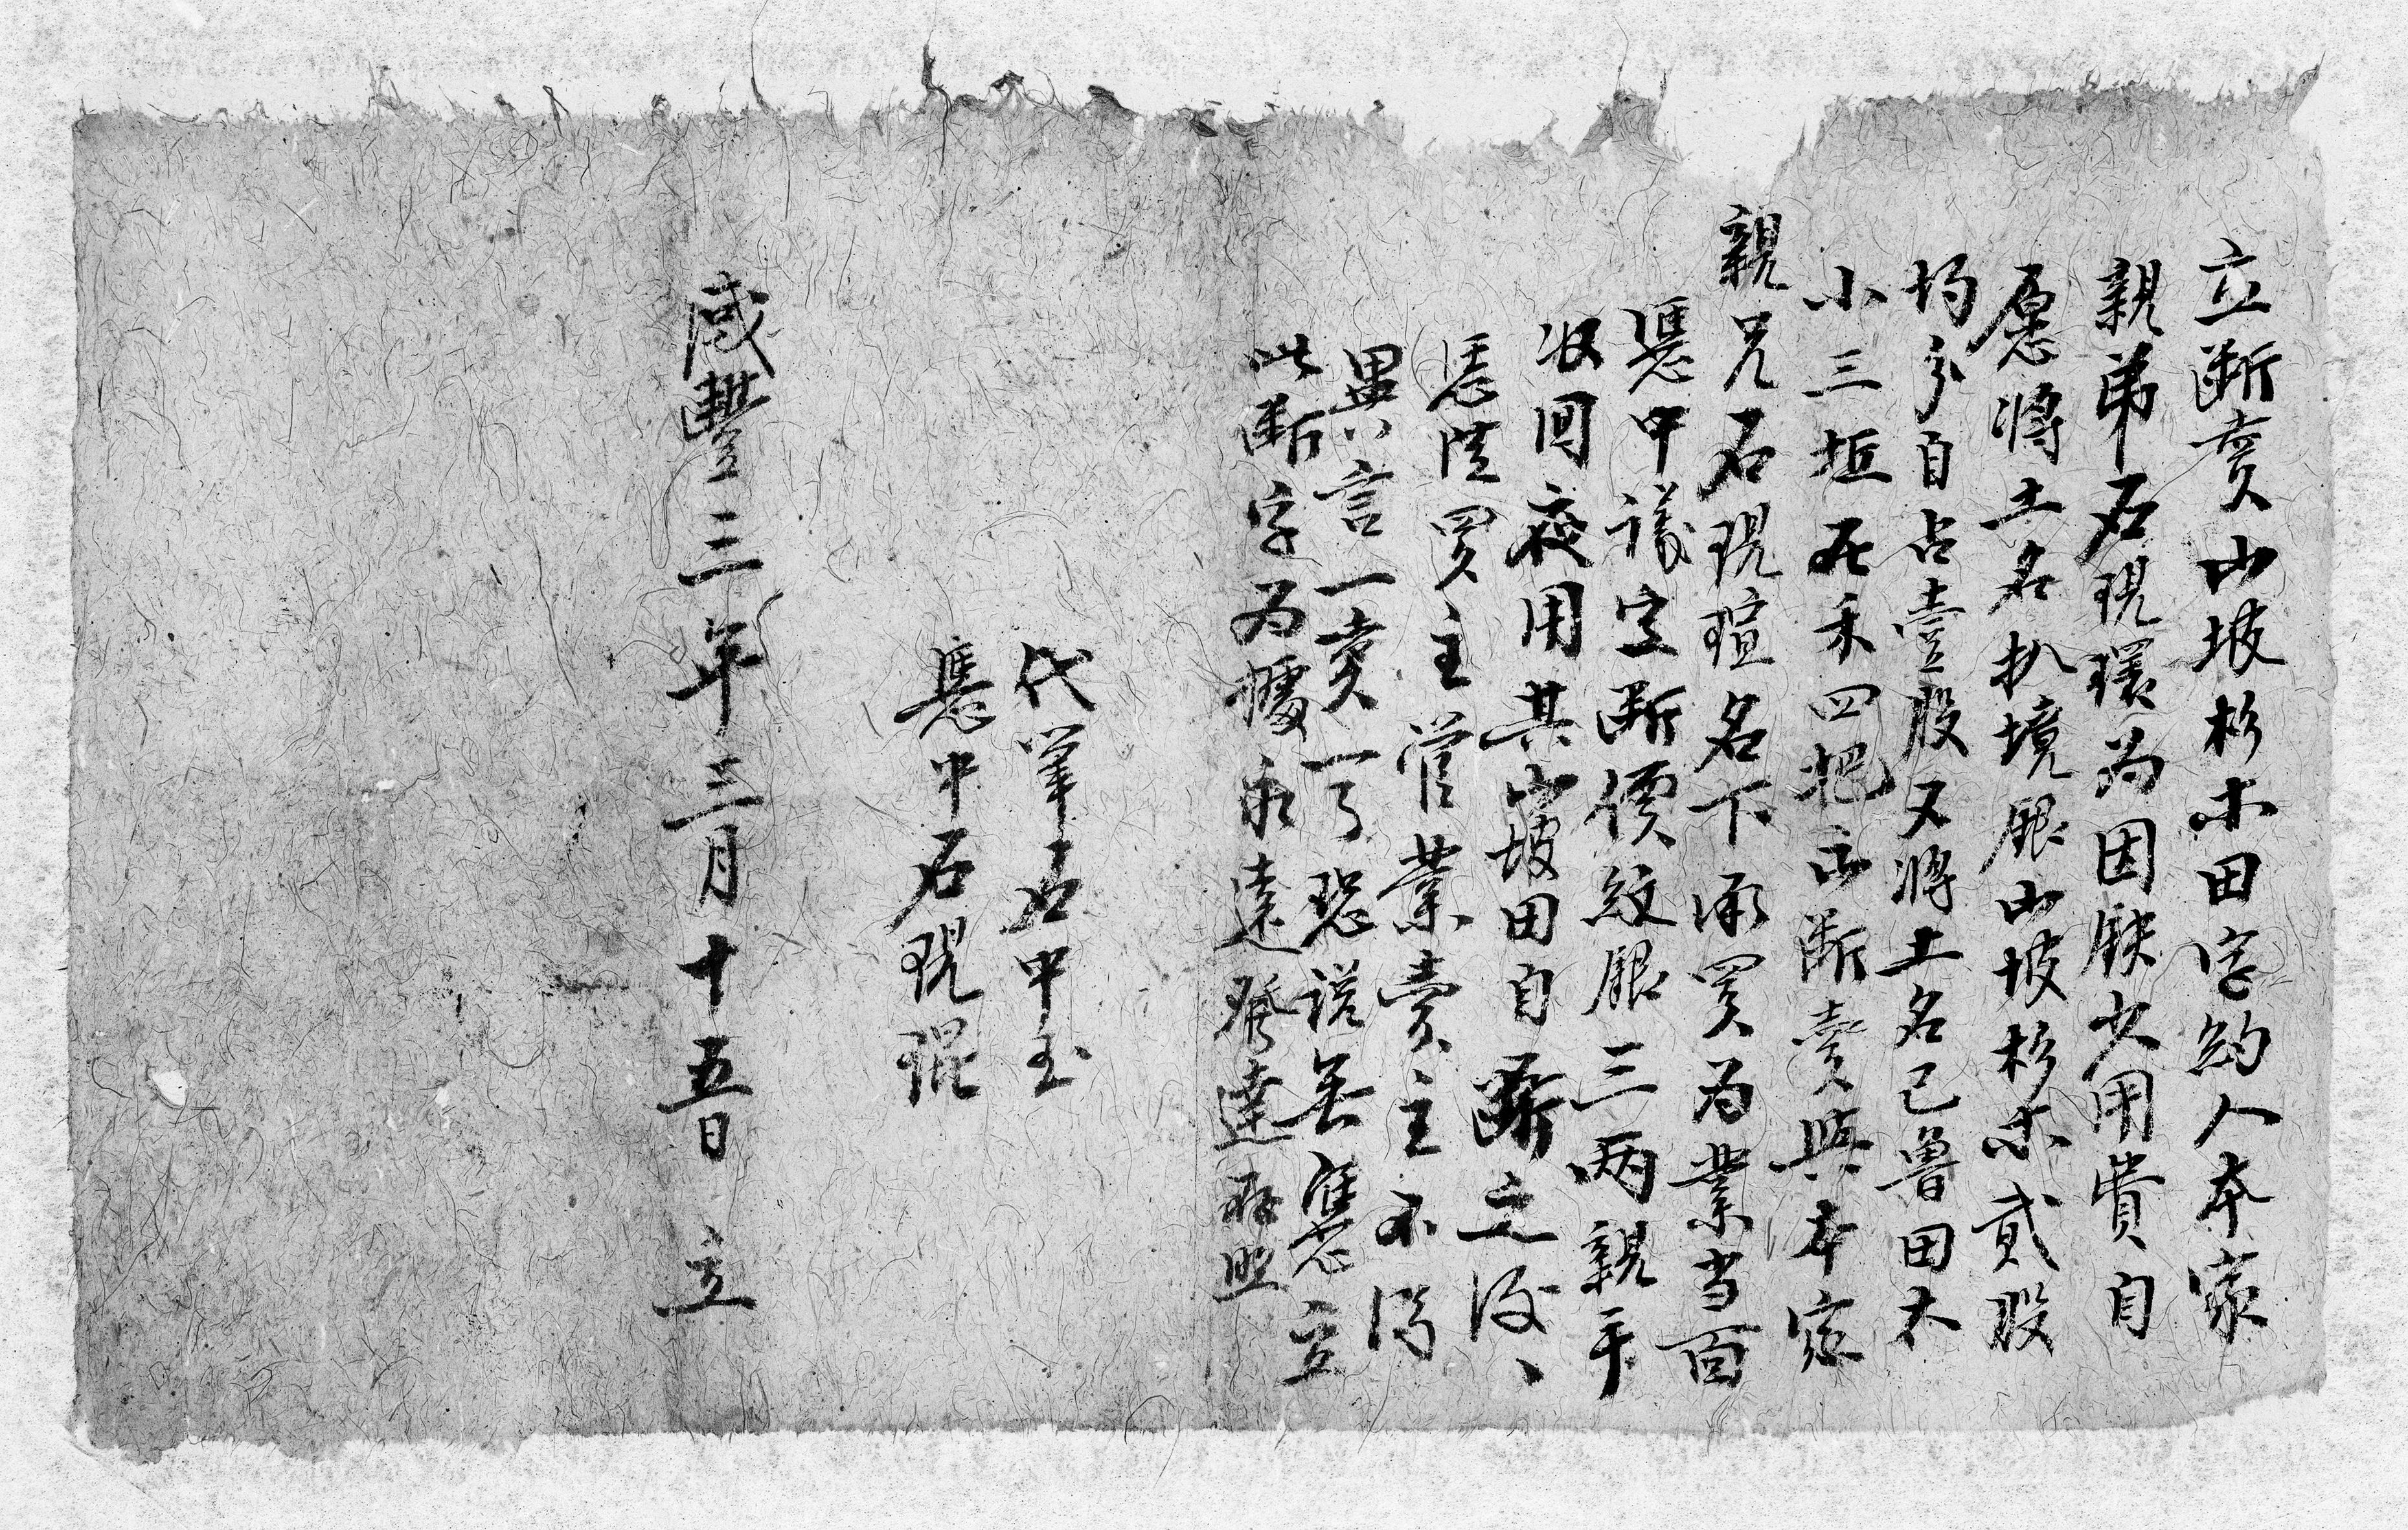 立断賣山坡杉木田字約人本家
親弟石現環為因缺少用費自
愿将土名扒境艮山坡杉木貳股
均分自占壹股又将土名已魯田大
小三坵禾四把正断賣與本家
親兄石現瑄名下承買為業当面
憑中議定断價紋銀三两親手
收回應用其山坡田自断之後、
憑從買主管業賣主不得
異言一賣一了恐說無憑立
此断字為據永遠發達存照
代筆石中玉
憑中石現琨
咸豐三年三月十五日 立